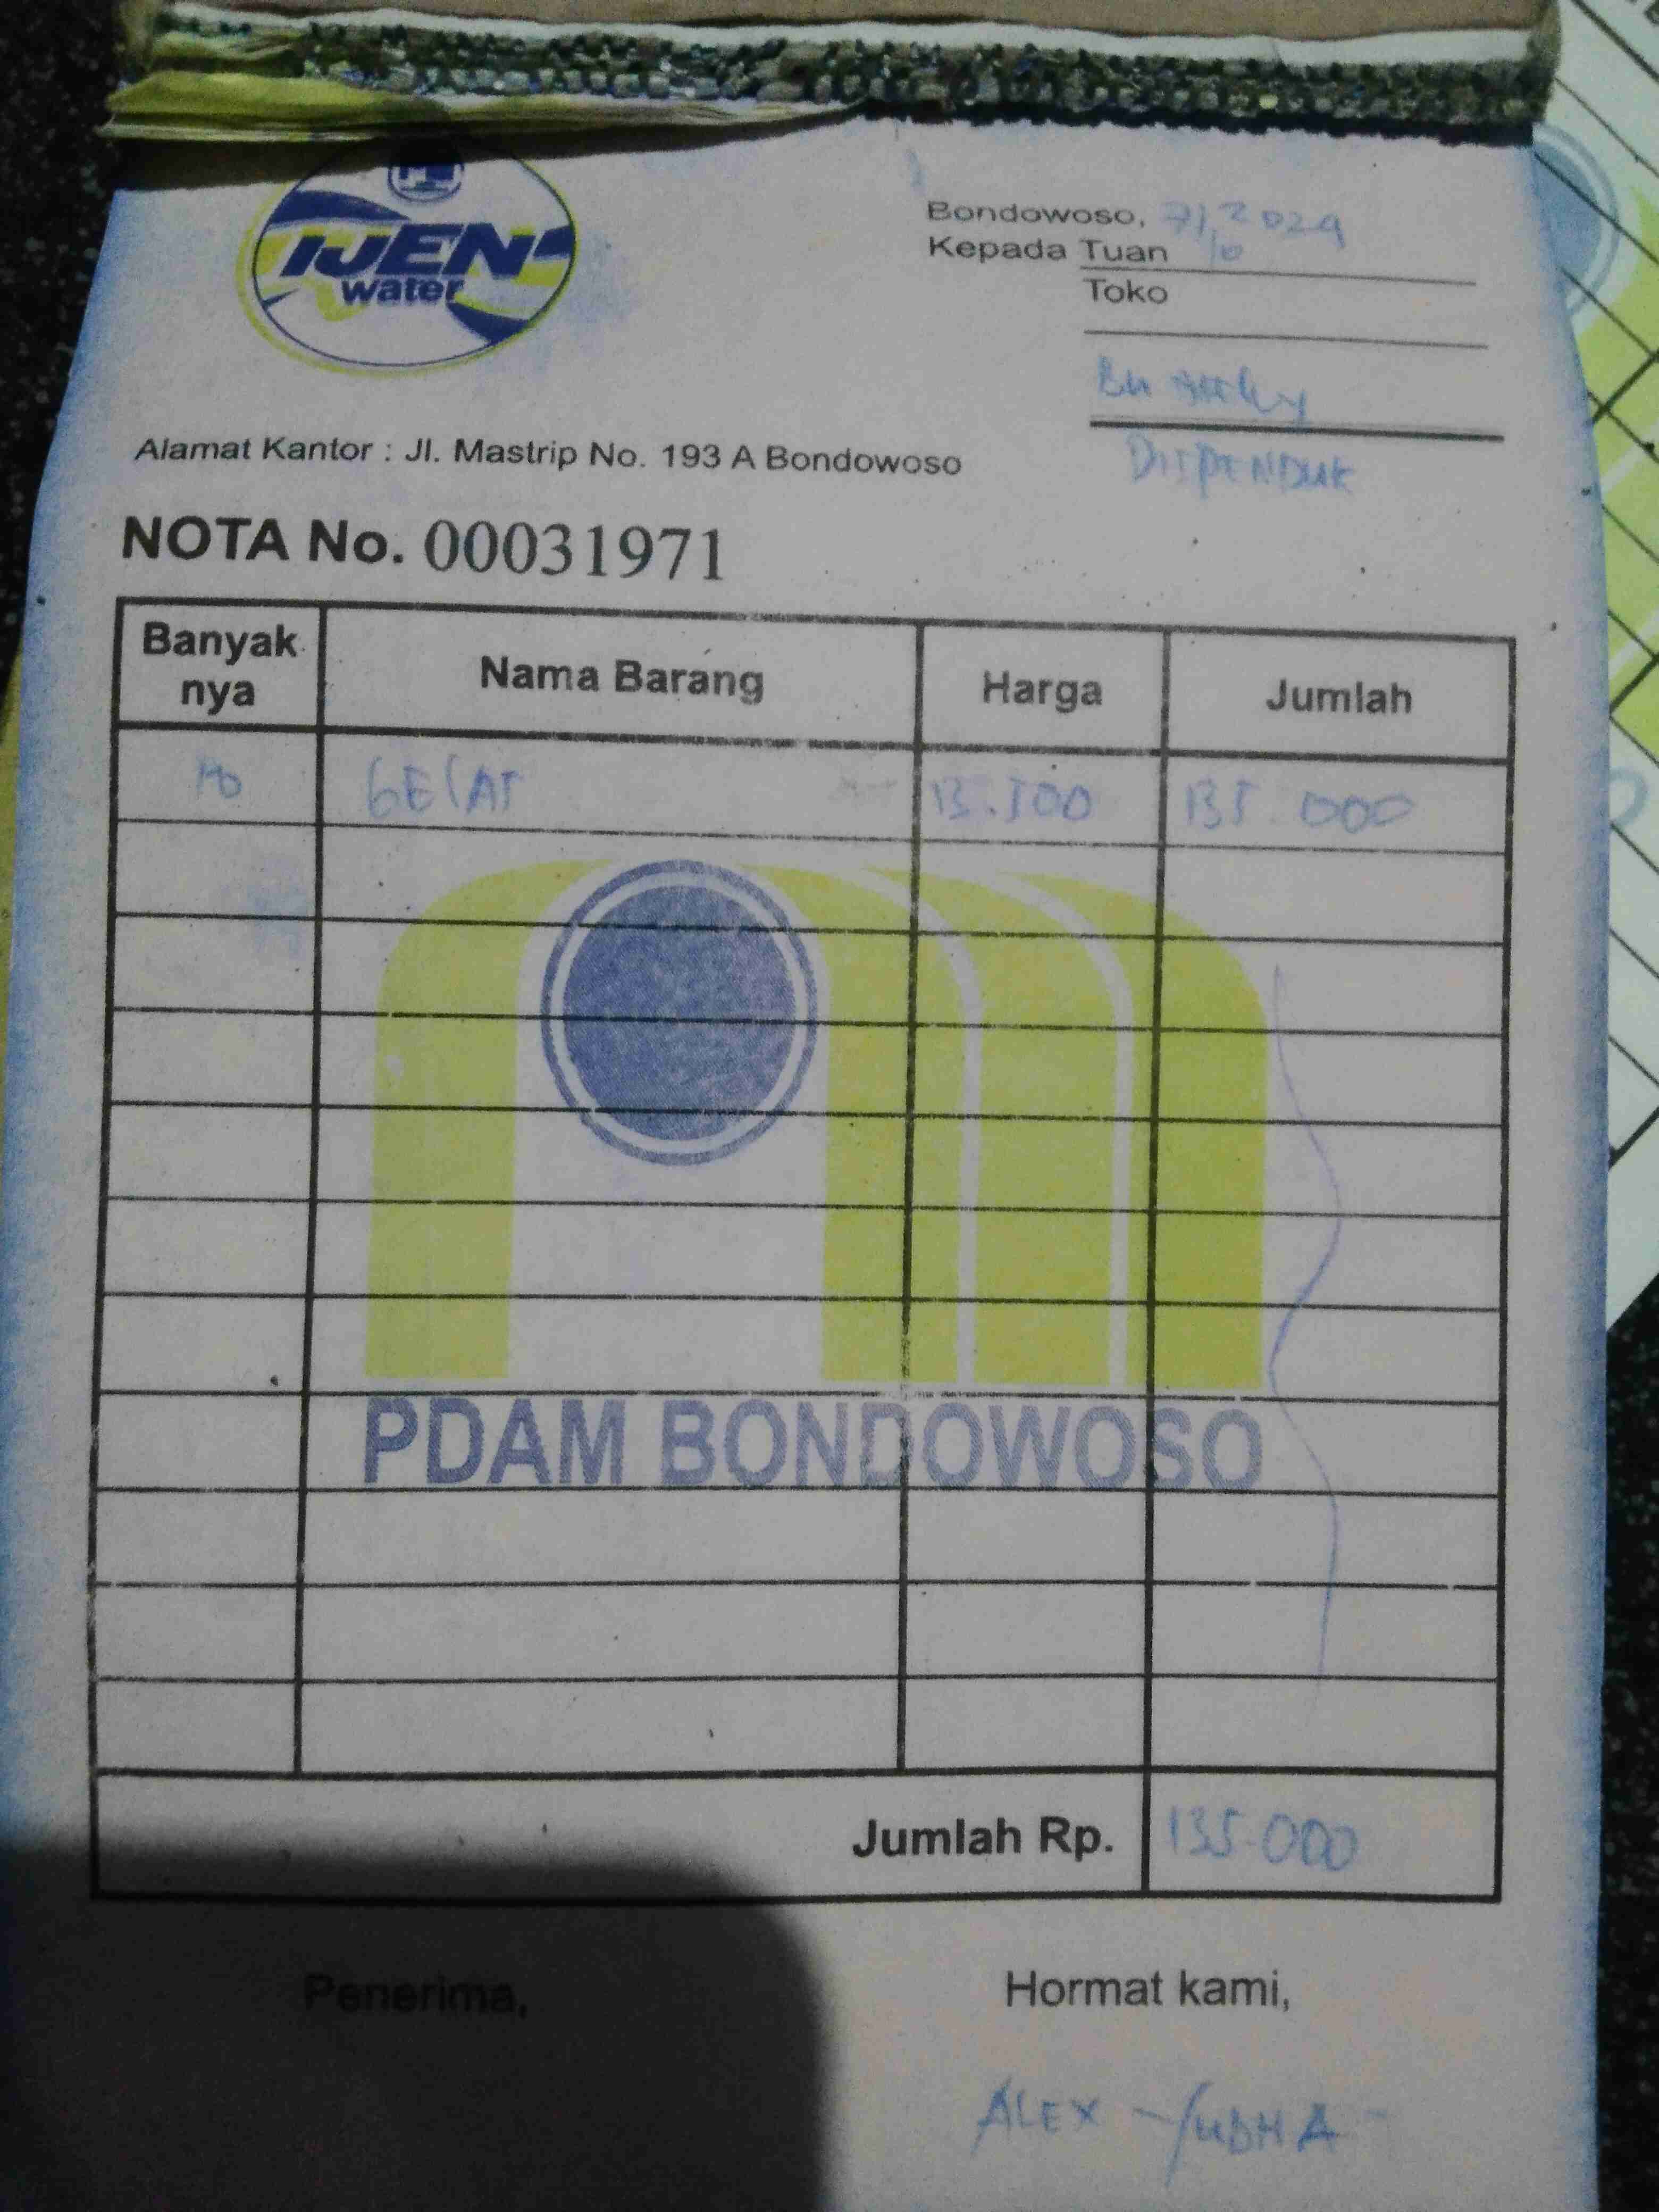 IJEN
water
Bondowoso, 7/10 2024
Kepada Tuan
Toko
Bu
DISPENDUK
Alamat Kantor : Jl. Mastrip No. 193 A Bondowoso
NOTA No. 00031971
Banyak nya Nama Barang Harga Jumlah
10 GELAS 13.500 135.000
PDAM BONDOWOSO
Jumlah Rp. 135.000
Penerima, Hormat kami,
ALEX - YUDHA -